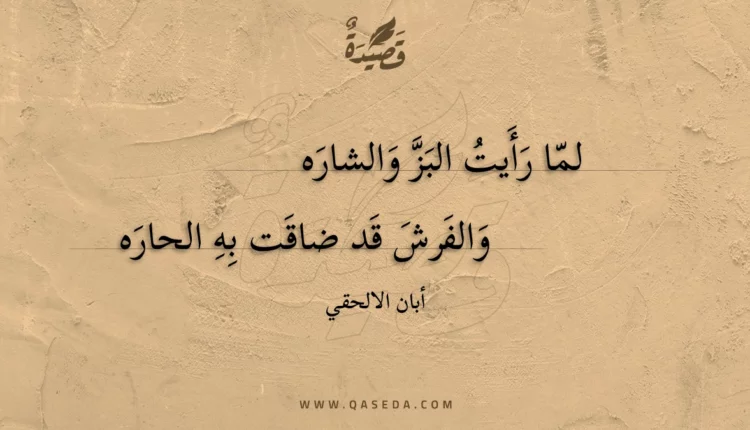 قَصِيْدَةٌ
لمّا رَأَيتُ البَزَّ وَالشارَه
وَالفَرشَ قَد ضاقَت بِهِ الحارَه
أبان الالحقي
WWW.QASEDA.COM